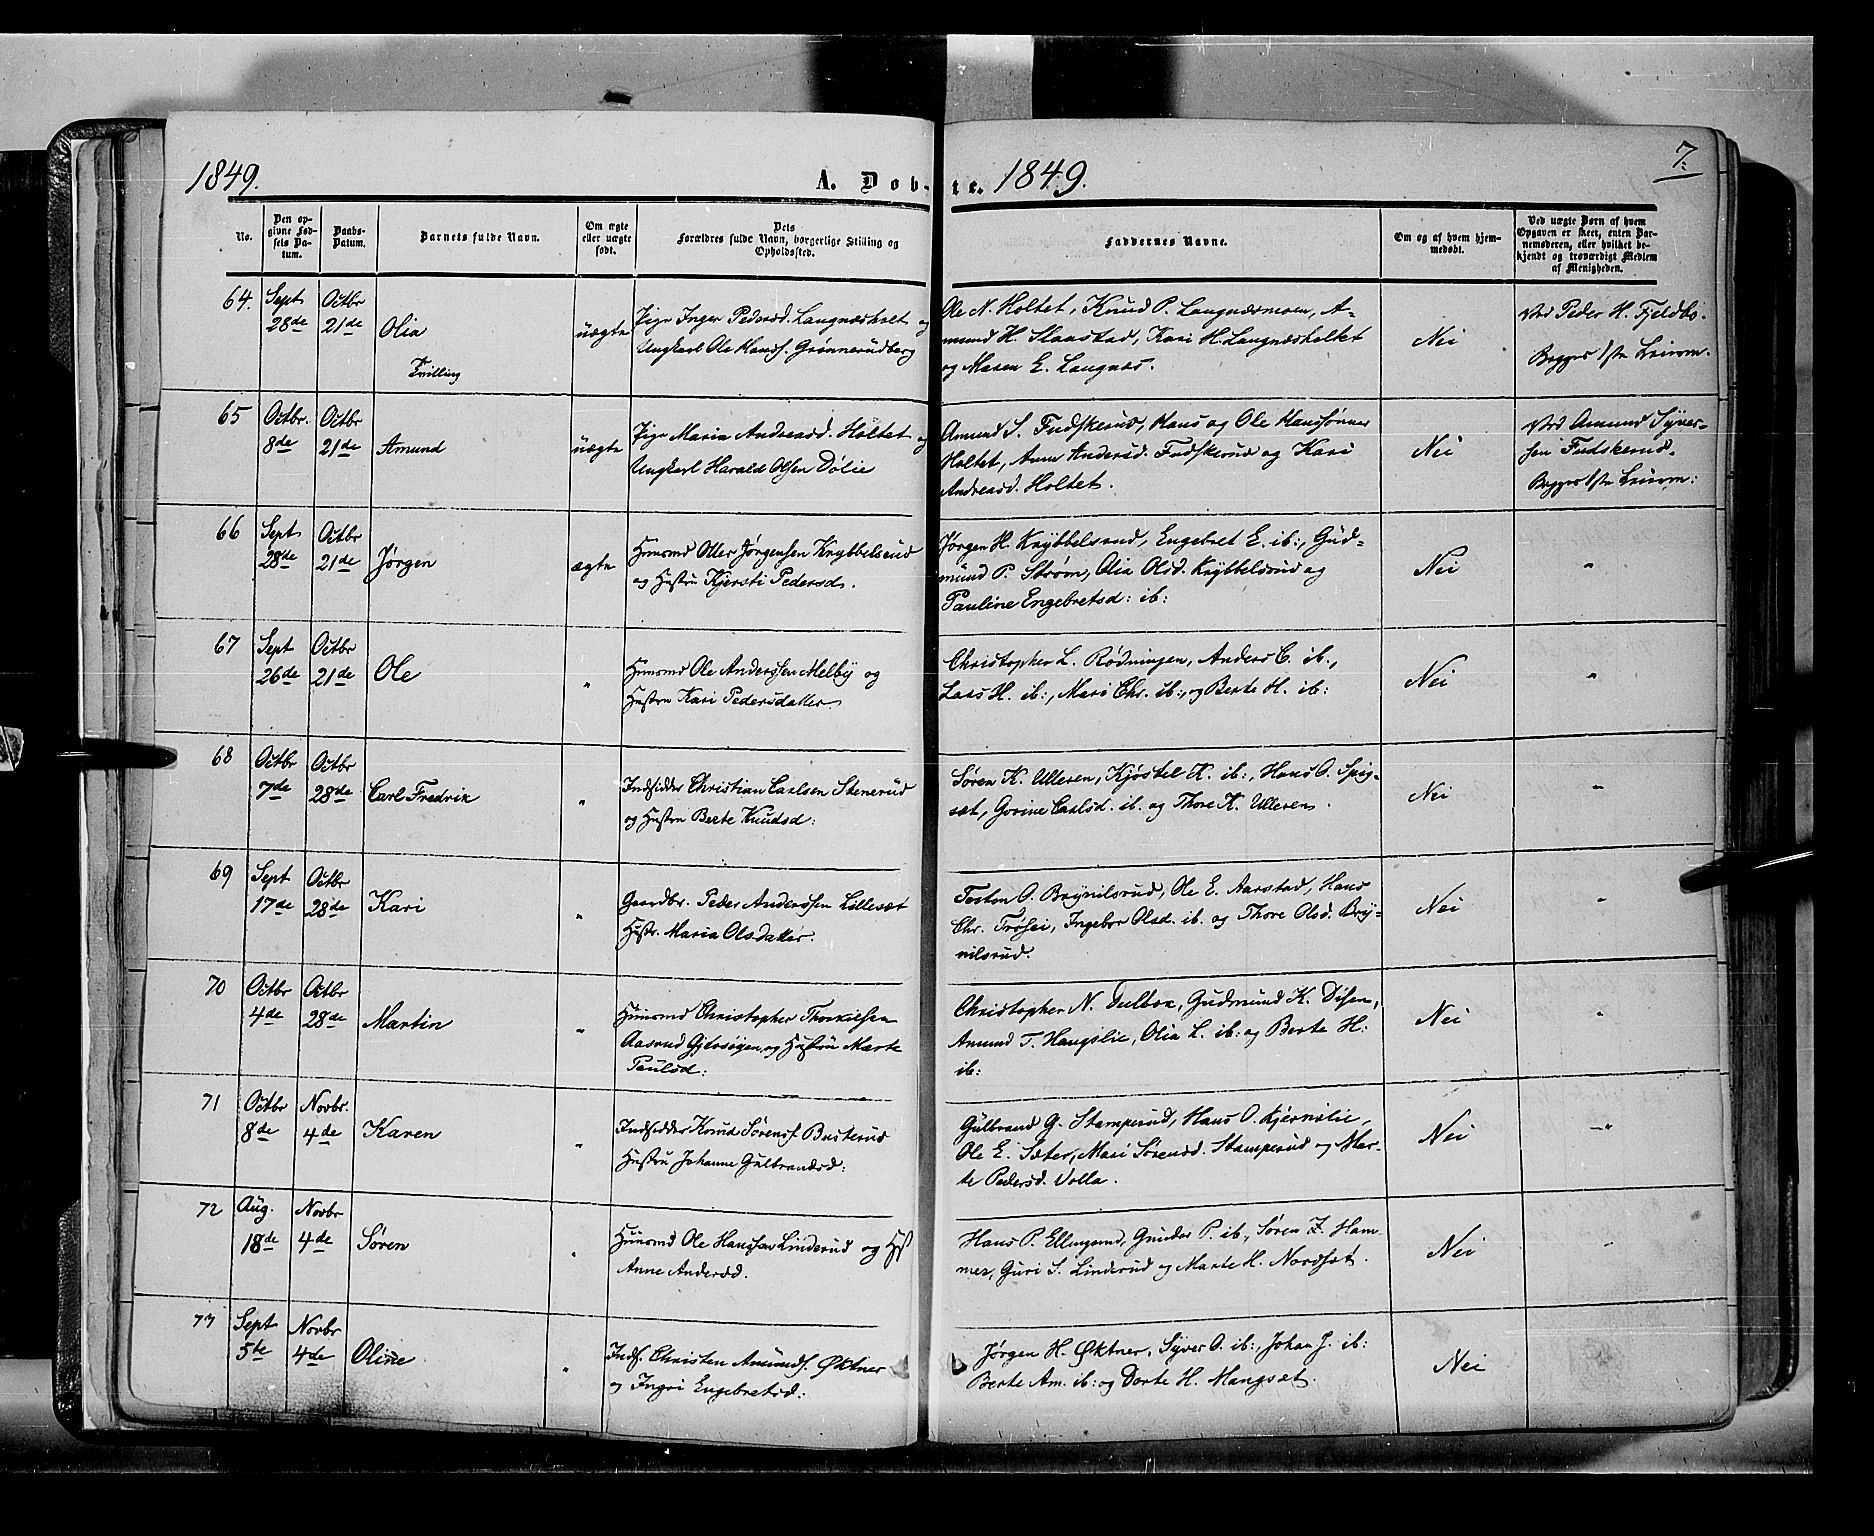 1849.
A. Døb-
te. 1849.
7.
No.
Den op-
givne Fød-
sels Da-
tum.
Daabs-
Datum.
Barnets fulde Navn.
Om ægte
eller uægte
født.
Dets
Forældres fulde Navn, borgerlige Stilling og
Opholdssted.
Faddernes Navne.
Om og af hvem hjem-
medøbt.
Ved uægte Børn af hvem
Opgaven er skeet, enten Bar-
nemoderen, eller hvilket be-
kjendt og troværdigt Medlem
af Menigheden.
64.
Sept
28de
Octbr
21de
Olia
Tvilling
uægte
Pige Inger Pedersd. Langnæsholt og
Ungkarl Ole Hansf. Grønnerudberg
Ole N. Holtet, Knud P. Langnæsmoen, A-
mund H. Slaastad, Kari H. Langnæsholtet
og Maren E. Langnæs.
Nei
Ved Peder H. Fjeldbo.
Begges 1ste Leierm.
65
Octbr.
8de
Octbr
21de
Amund
uægte
Pige Maria Andreasd. Holtet og
Ungkarl Harald Olsen Dølie
Amund S. Fudskerud, Hans og Ole Hansønner
Holtet, Anne Andersd. Fudskerud og Kari
Andreasd. Holtet.
Nei
Ved Amund Syver-
sen Fudskerud.
Begges 1ste Leierm:
66
Sept
28de
Octbr
21de
Jørgen
ægte
Huusmd Otter Jørgensen Krybbelsrud
og Hustru Kjersti Pedersd.
Jørgen H. Krybbelsrud, Engebret E. ib:, Gud=
mund P. Strøm, Olia Olsd. Krybbelsrud og
Pauline Engebretsd: ib:
Nei
"
67
Sept
26de
Octbr
21de
Ole
"
Huusmd Ole Anderssen Melby og
Hustru Kari Pedersdatter
Christopher L. Rødningen, Anders C. ib.,
Lars H. ib:, Mari Chr. ib:, og Berte H. ib:
Nei
"
68
Octbr
7de
Octbr
28de
Carl Fredrik
"
Indsidder Christian Carlsen Stenerud
og Hustru Berte Knudsd:
Søren K. Ulleren, Kjøstel K. ib:, Hans O. Spig-
set, Govine Carlsd. ib. og Thore K. Ulleren.
Nei
"
69
Sept
17de
Octbr
28de
Kari
"
Gaardbr. Peder Anderssen Lillesæt
Hustr. Maria Olsdatter.
Tosten O. Brynilsrud, Ole E. Aarstad, Hans
Chr. Trøsei, Ingebor Olsd. ib. og Thore Olsd. Bry=
nilsrud.
Nei
"
70
Octbr
4de
Octbr
28de
Martin
"
Huusmd Christopher Thorkielsen
Aasrud Gjersøyen, og Hustru Marte
Paulsd:
Christopher N. Dulbox, Gudmund K. Disen,
Amund T. Haugslie, Olia L. ib: og Berte H:
ib:
Nei
"
71
Octbr
8de
Novbr.
4de
Karen
"
Indsidder Knud Sørensf. Busterud
Hustru Johanne Gulbrandsd:
Gulbrand G. Stamperud, Hans O. Kjernslie,
Ole E. Sæter, Mari Sørensd. Stamperud og Mar-
te Pedersd. Volla.
Nei
"
72
Aug.
18de
Novbr
4de
Søren
"
Huusmd Ole Hanssen Linderud og Hst
Anne Andersd.
Hans P. Ellingsrud, Gunder P. ib., Søren Z. Ham-
mer, Guri S. Linderud og Marte H. Nordset.
Nei
"
73
Sept
5te
Novbr
4de
Oline
"
Indf. Christen Amundf. Øktner
og Ingri Engebretsd:
Jørgen H. Øktner, Syver O. ib:, Johan J. ib:
Berte Am. ib: og Dorte H. Mangset.
Nei